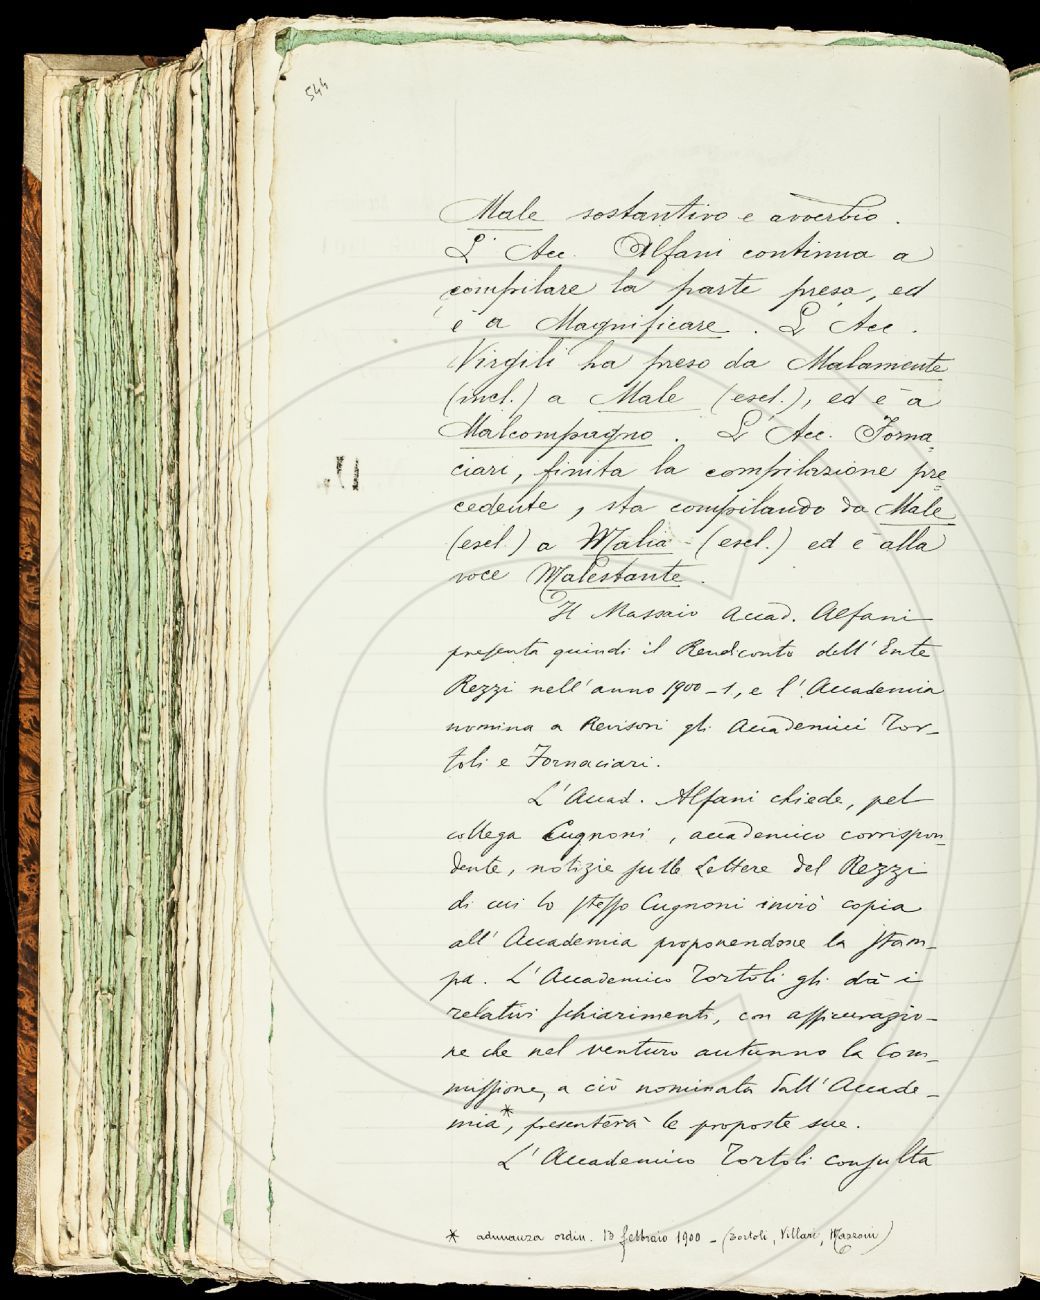 544
Male sostantivo e avverbio.
L' Acc. Alfani continua a
compilare la parte presa, ed
è a Magnificare. L' Acc.
Virgili ha preso da Malamente
(incl.) a Male (escl.), ed è a
Malcompagno. L' Acc. Forna=
ciari, finita la compilazione pre=
cedente, sta compilando da Male
(escl.) a Malia (escl.) ed è alla
voce Malestante.
Il Massaio Accad. Alfani
presenta quindi il Rendiconto dell' Ente
Rezzi nell' anno 1900-1, e l' Accademia
nomina a Revisori gli Accademici Tor-
toli e Fornaciari.
L' Accad. Alfani chiede, pel
collega Cugnoni, accademico corrispon=
dente, notizie sulle Lettere del Rezzi
di cui lo stesso Cugnoni inviò copia
all' Accademia proponendone la stam-
pa. L' Accademico Tortoli gli dà i
relativi schiarimenti, con assicurazio-
ne che nel venturo autunno la Com-
missione, a ciò nominata dall' Accade-
mia*, presenterà le proposte sue.
L' Accademico Tortoli consulta
* adunanza ordin. 13 febbraio 1900 - (Tortoli, Villari, Mazzoni)